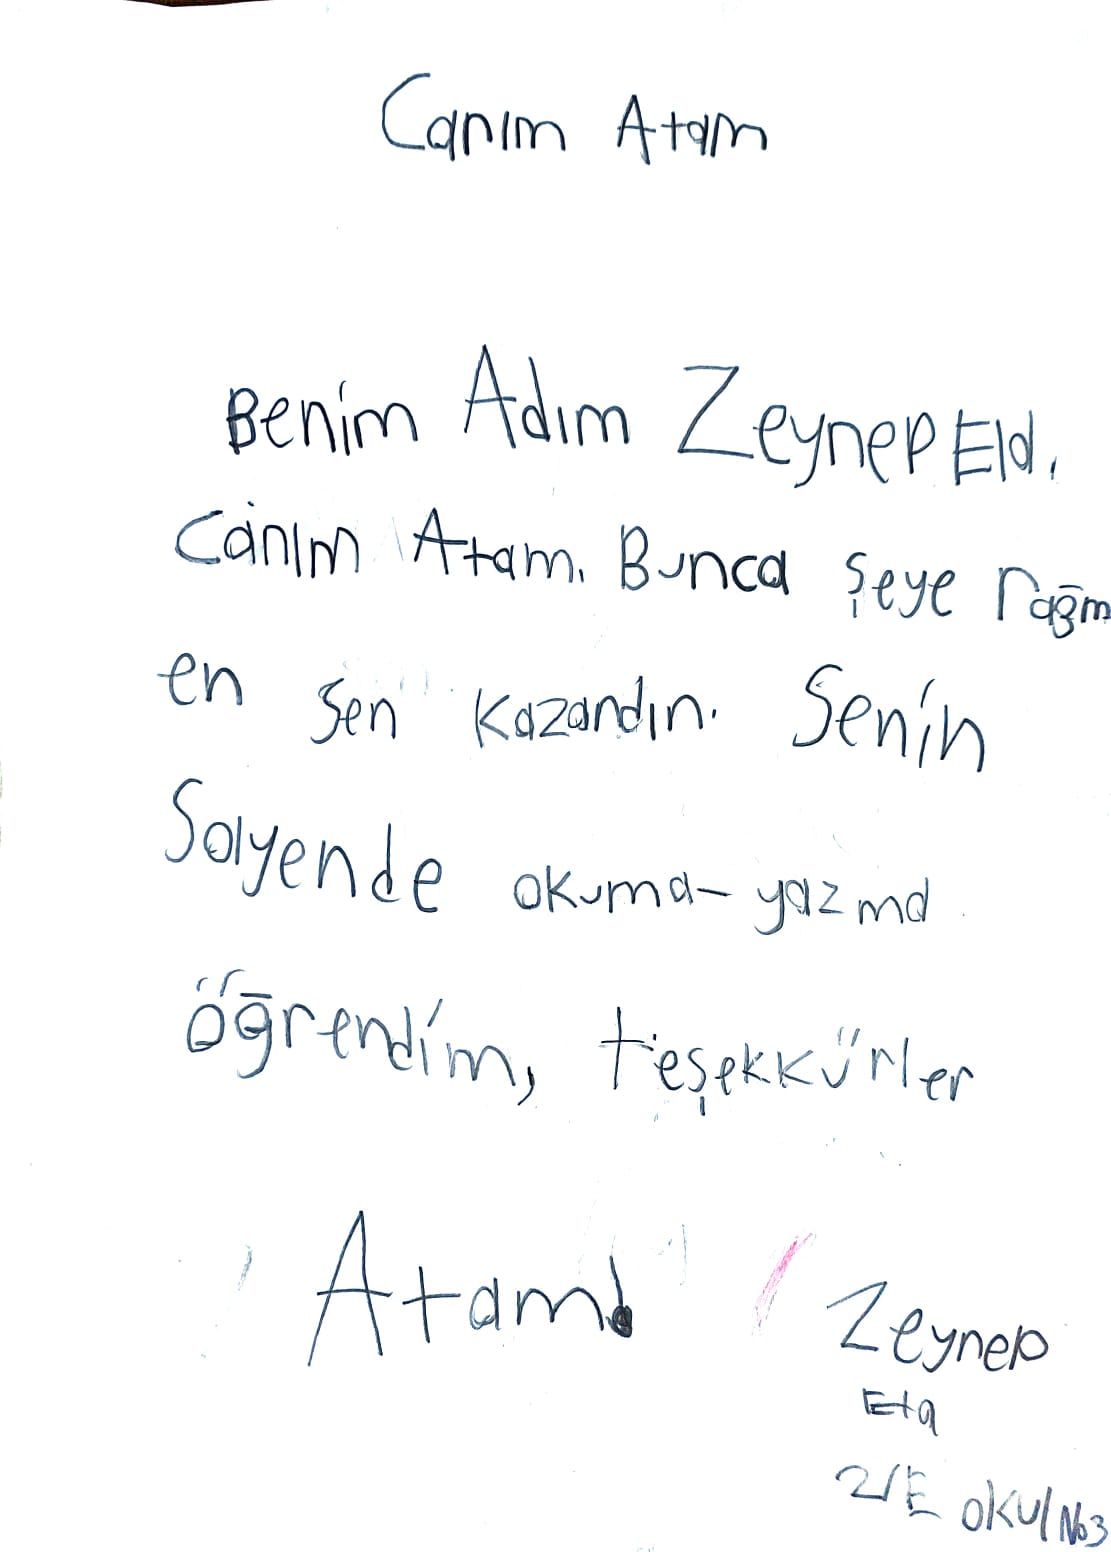 Canım Atam
Benim Adım Zeynep Ela.
Canım Atam. Bunca şeye rağm
en sen kazandın. Senin
Solyende okuma-yazma
öğrendim, teşekkürler
Atam!
Zeynep
Ela
2/E okul No3